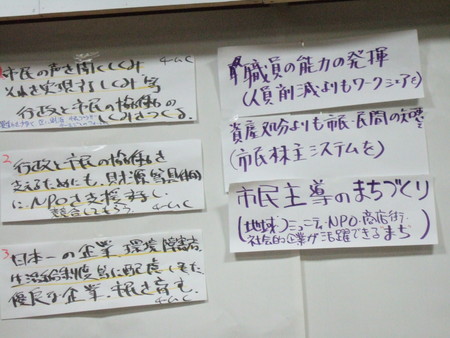 市民の声を聞くしくみ
それを実現するしくみ等
行政と市民の協働の
しくみをつくる。
4-G.C
2.
行政と市民の協働を
支えるためにも、
に、NPOを支援する。
競合してもらう。
4-G.C
3.
日本一の企業、環境、障害者、
生活給制度等に配慮してた
優良な企業、根を育む。
4-G.C
職員の能力の発揮
(人員削減よりもワークシェアを)
資産処分よりも市民・民間の知恵を
(市民株主システムを)
市民主導のまちづくり
(地球)コミュニティ・NPO・商店街・
社会的企業が活躍できるまち)